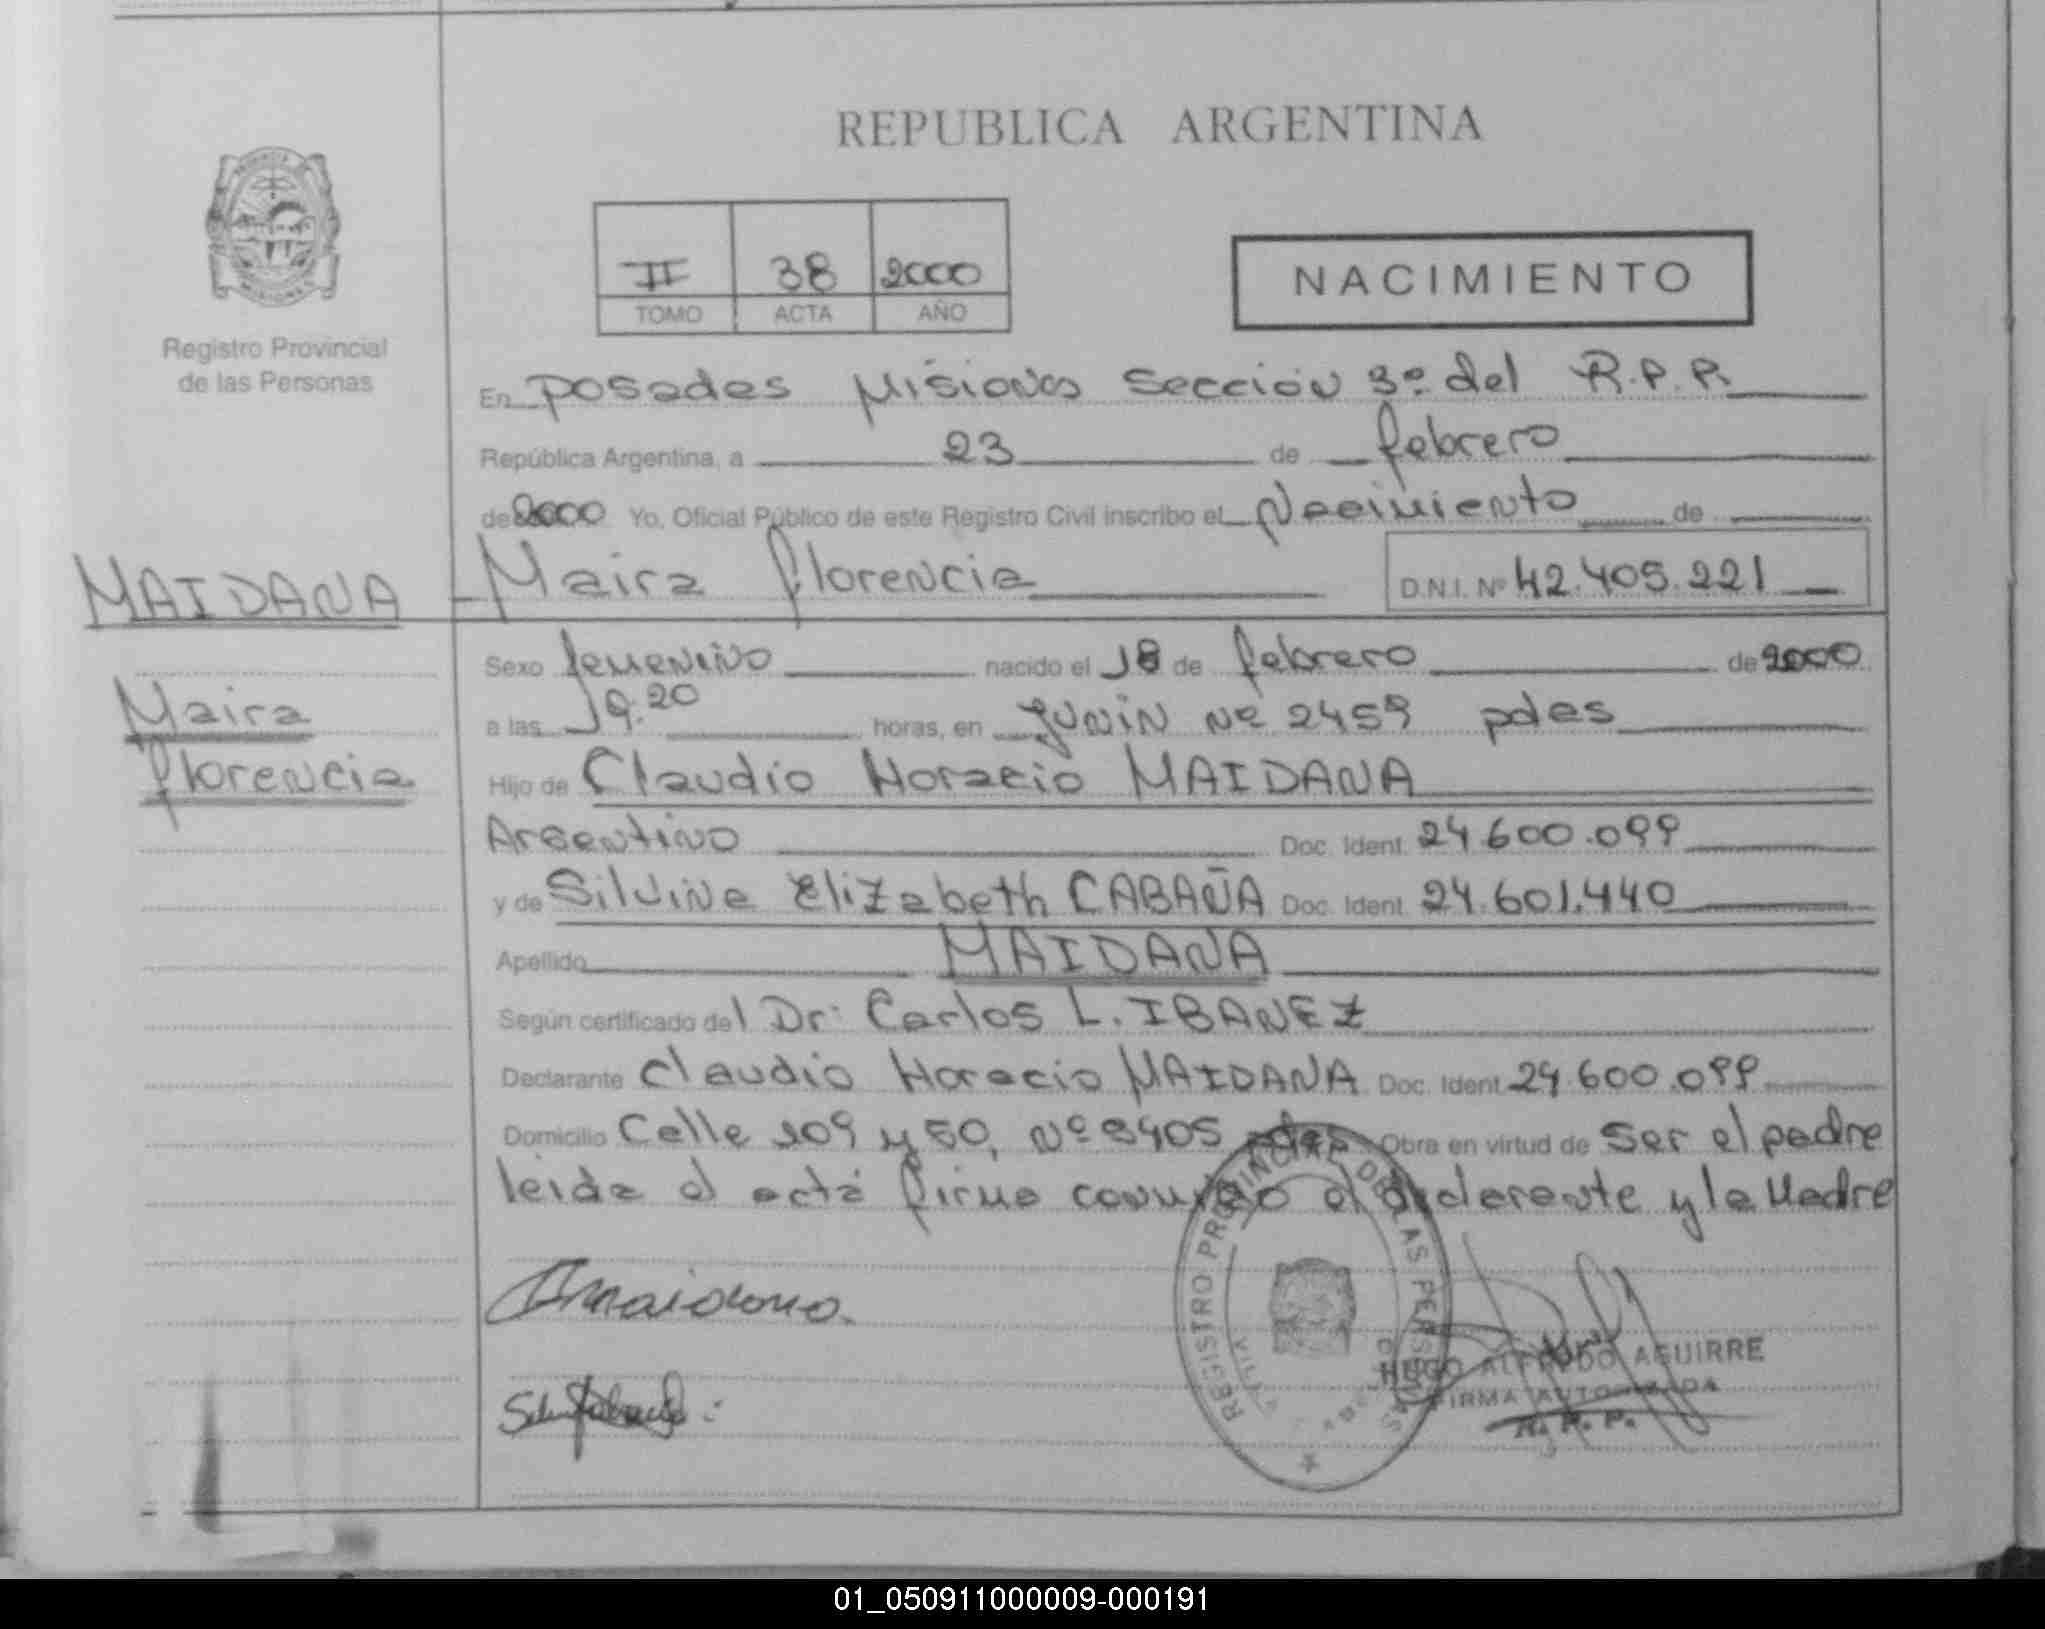 REPUBLICA ARGENTINA
II 38 2000
TOMO ACTA AÑO
NACIMIENTO
Registro Provincial
de las Personas
En Posadas Misiones Sección 3º del R.P.P.
República Argentina, a 23 de febrero
de 2000 Yo, Oficial Público de este Registro Civil inscribo el Nacimiento de
MAIDANA
Maira florencia D.N.I. Nº 42.405.221
Maira
florencia
Sexo femenino nacido el 18 de febrero de 2000
a las 19.20 horas, en Junin Nº 2459 pdas
Hijo de Claudio Horacio MAIDANA
Argentino Doc. Ident. 24.600.099
y de Silvina Elizabeth CABAÑA Doc. Ident. 24.601.440
Apellido MAIDANA
Según certificado del Dr: Carlos L. IBANEZ
Declarante Claudio Horacio MAIDANA Doc. Ident. 24.600.099
Domicilio Calle 109 y 50, Nº 3405 pdas Obra en virtud de ser el padre
leida el acta firma conmigo el declarante y la Madre
REGISTRO PROVINCIAL DE LAS PERSONAS
HUGO ALFREDO AGUIRRE
FIRMA AUTORIZADA
R. P. P.
01_050911000009-000191